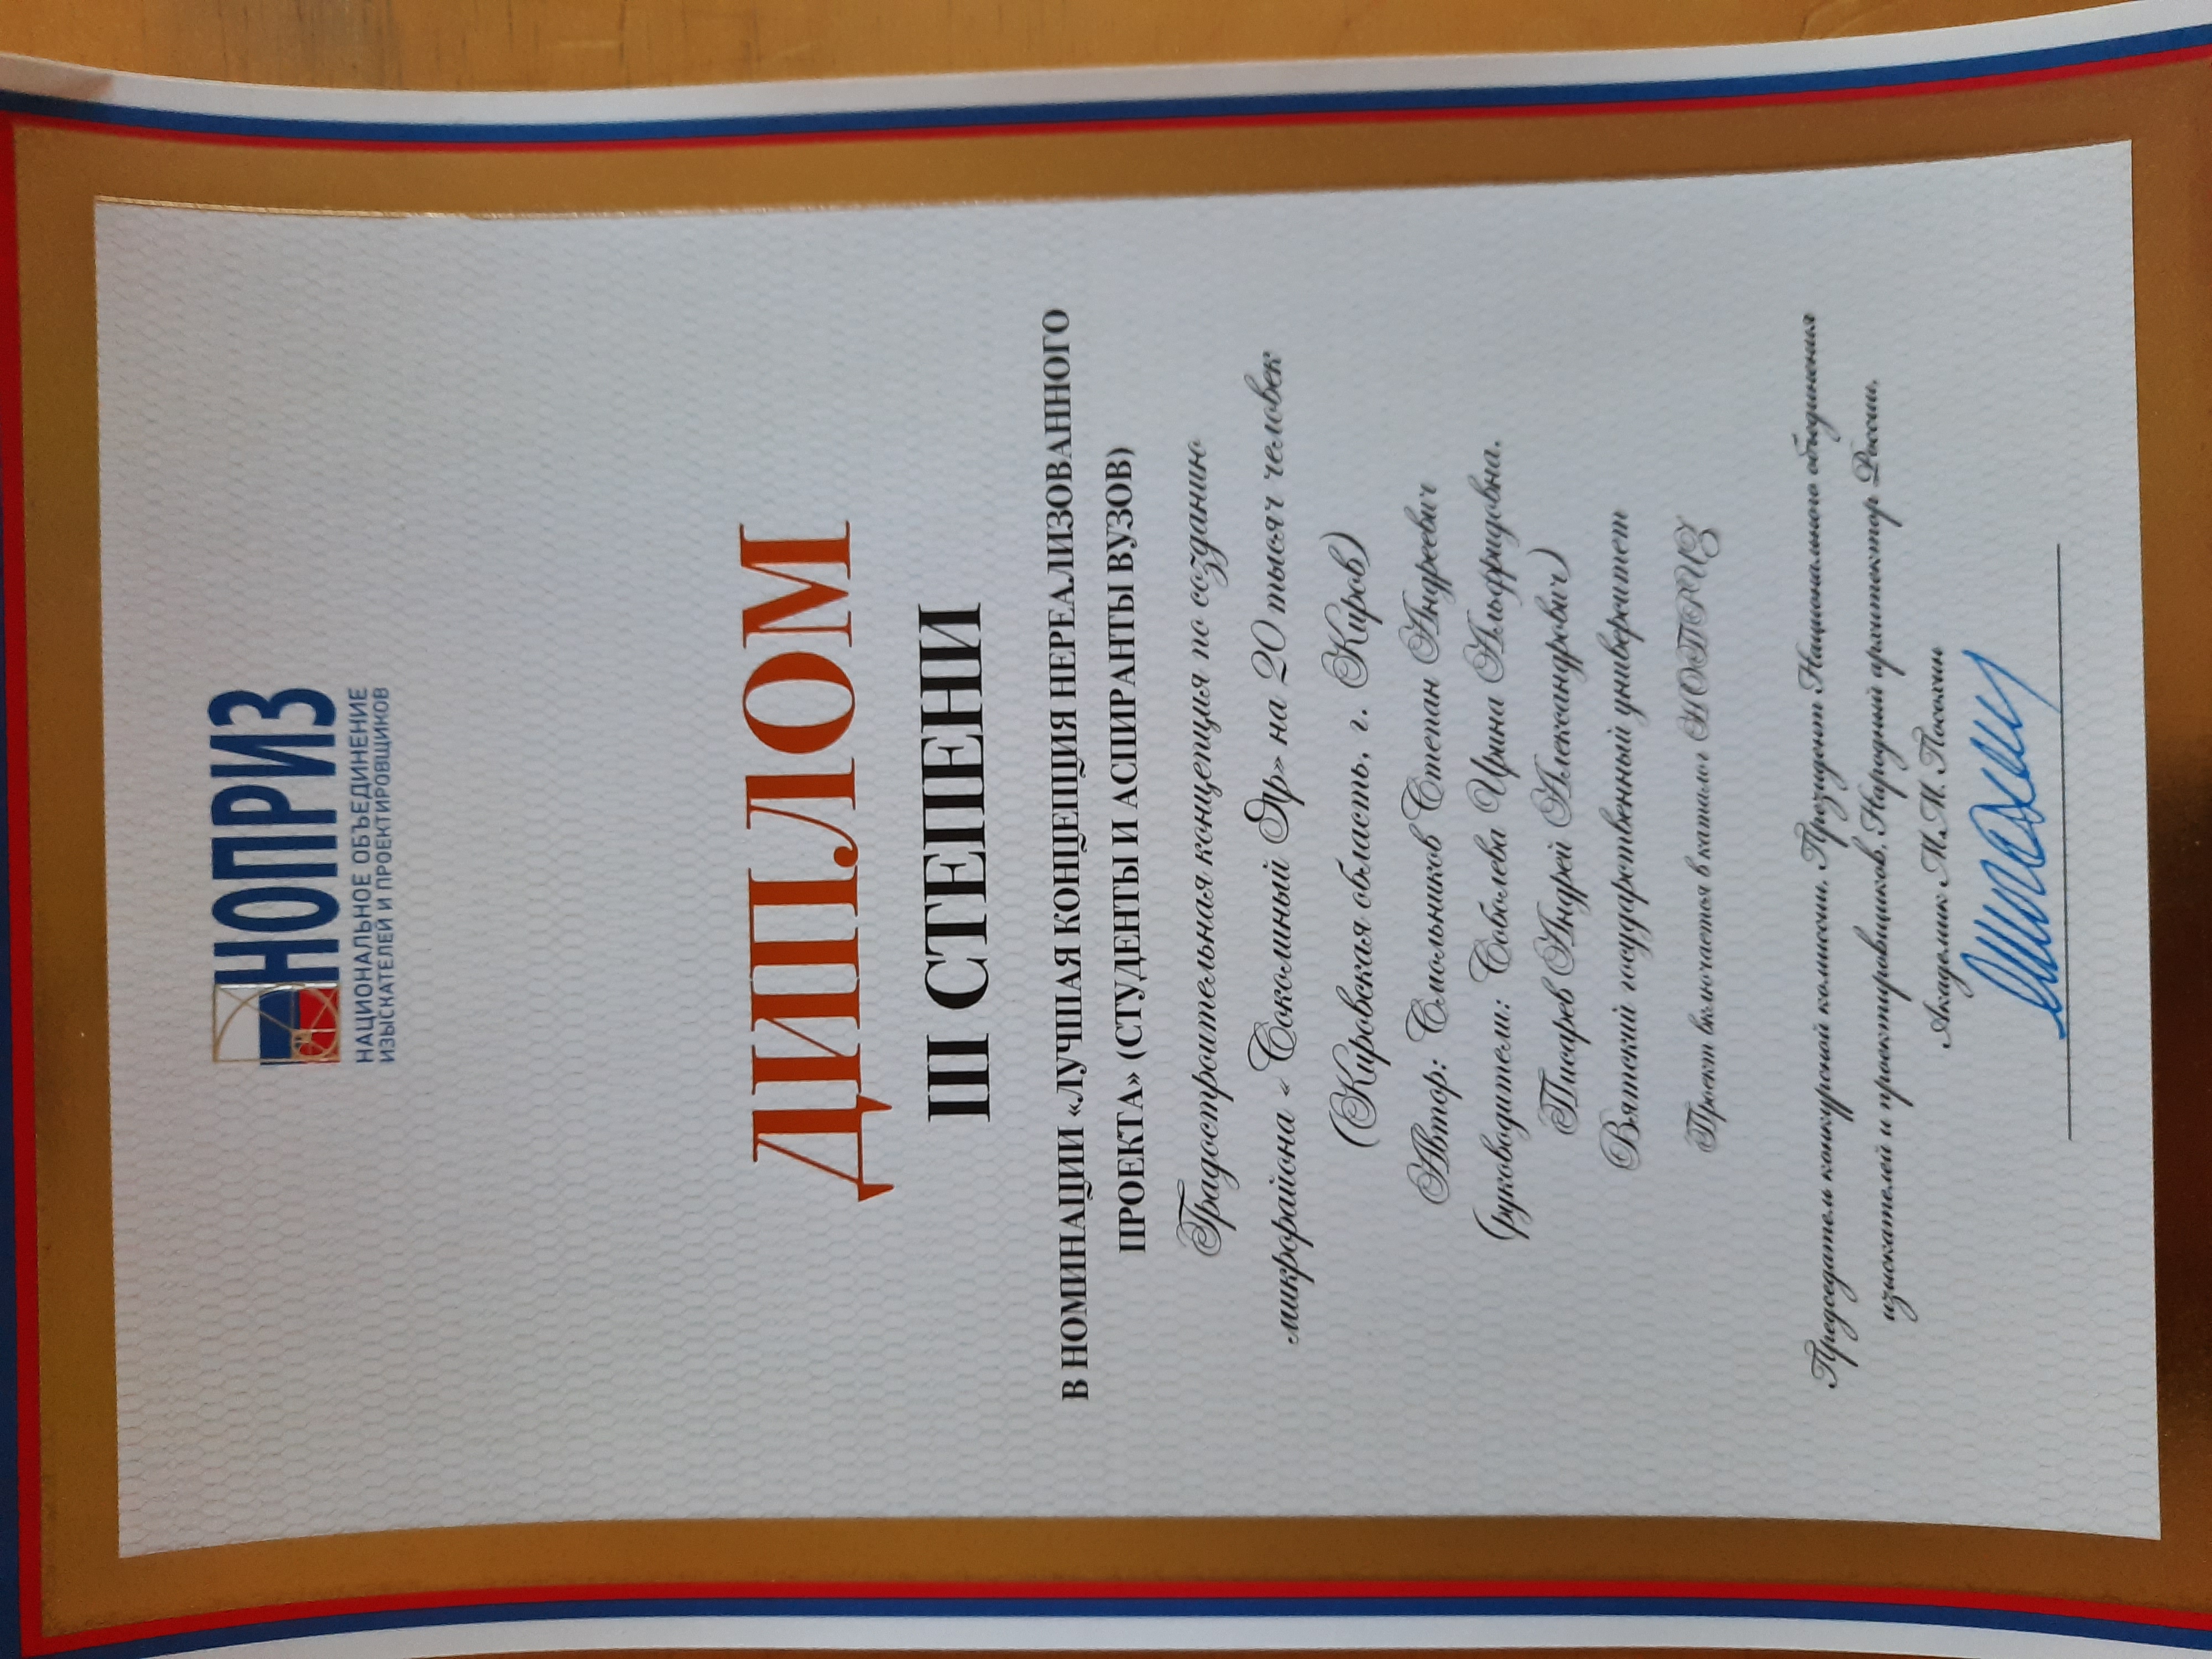 НОПРИЗ
НАЦИОНАЛЬНОЕ ОБЪЕДИНЕНИЕ
ИЗЫСКАТЕЛЕЙ И ПРОЕКТИРОВЩИКОВ
ДИПЛОМ
III СТЕПЕНИ
В НОМИНАЦИИ «ЛУЧШАЯ КОНЦЕПЦИЯ НЕРЕАЛИЗОВАННОГО
ПРОЕКТА» (СТУДЕНТЫ И АСПИРАНТЫ ВУЗОВ)
Градостроительная концепция по созданию
микрорайона «Соколиный Яр» на 20 тысяч человек
(Кировская область, г. Киров)
Автор: Смольников Степан Андреевич
(руководители: Соболева Ирина Альфридовна.
Писарев Андрей Александрович)
Вятский государственный университет
Проект включается в каталог НОПРИЗ
Председатель конкурсной комиссии, Президент Национального объединения
изыскателей и проектировщиков, Народный архитектор России,
Академик М.М. Посохин